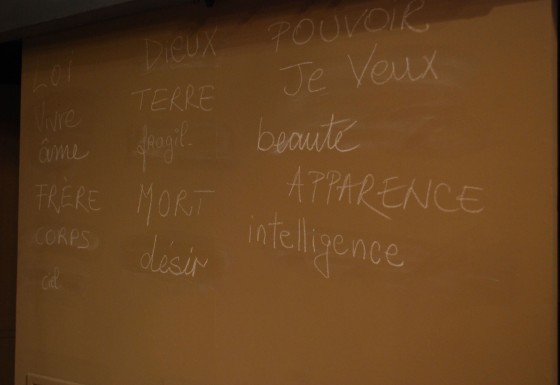 LOI
Vivre
âme
FRÈRE
CORPS
DIEUX
TERRE
fragil.
MORT
désir
POUVOIR
Je Veux
beauté
APPARENCE
intelligence